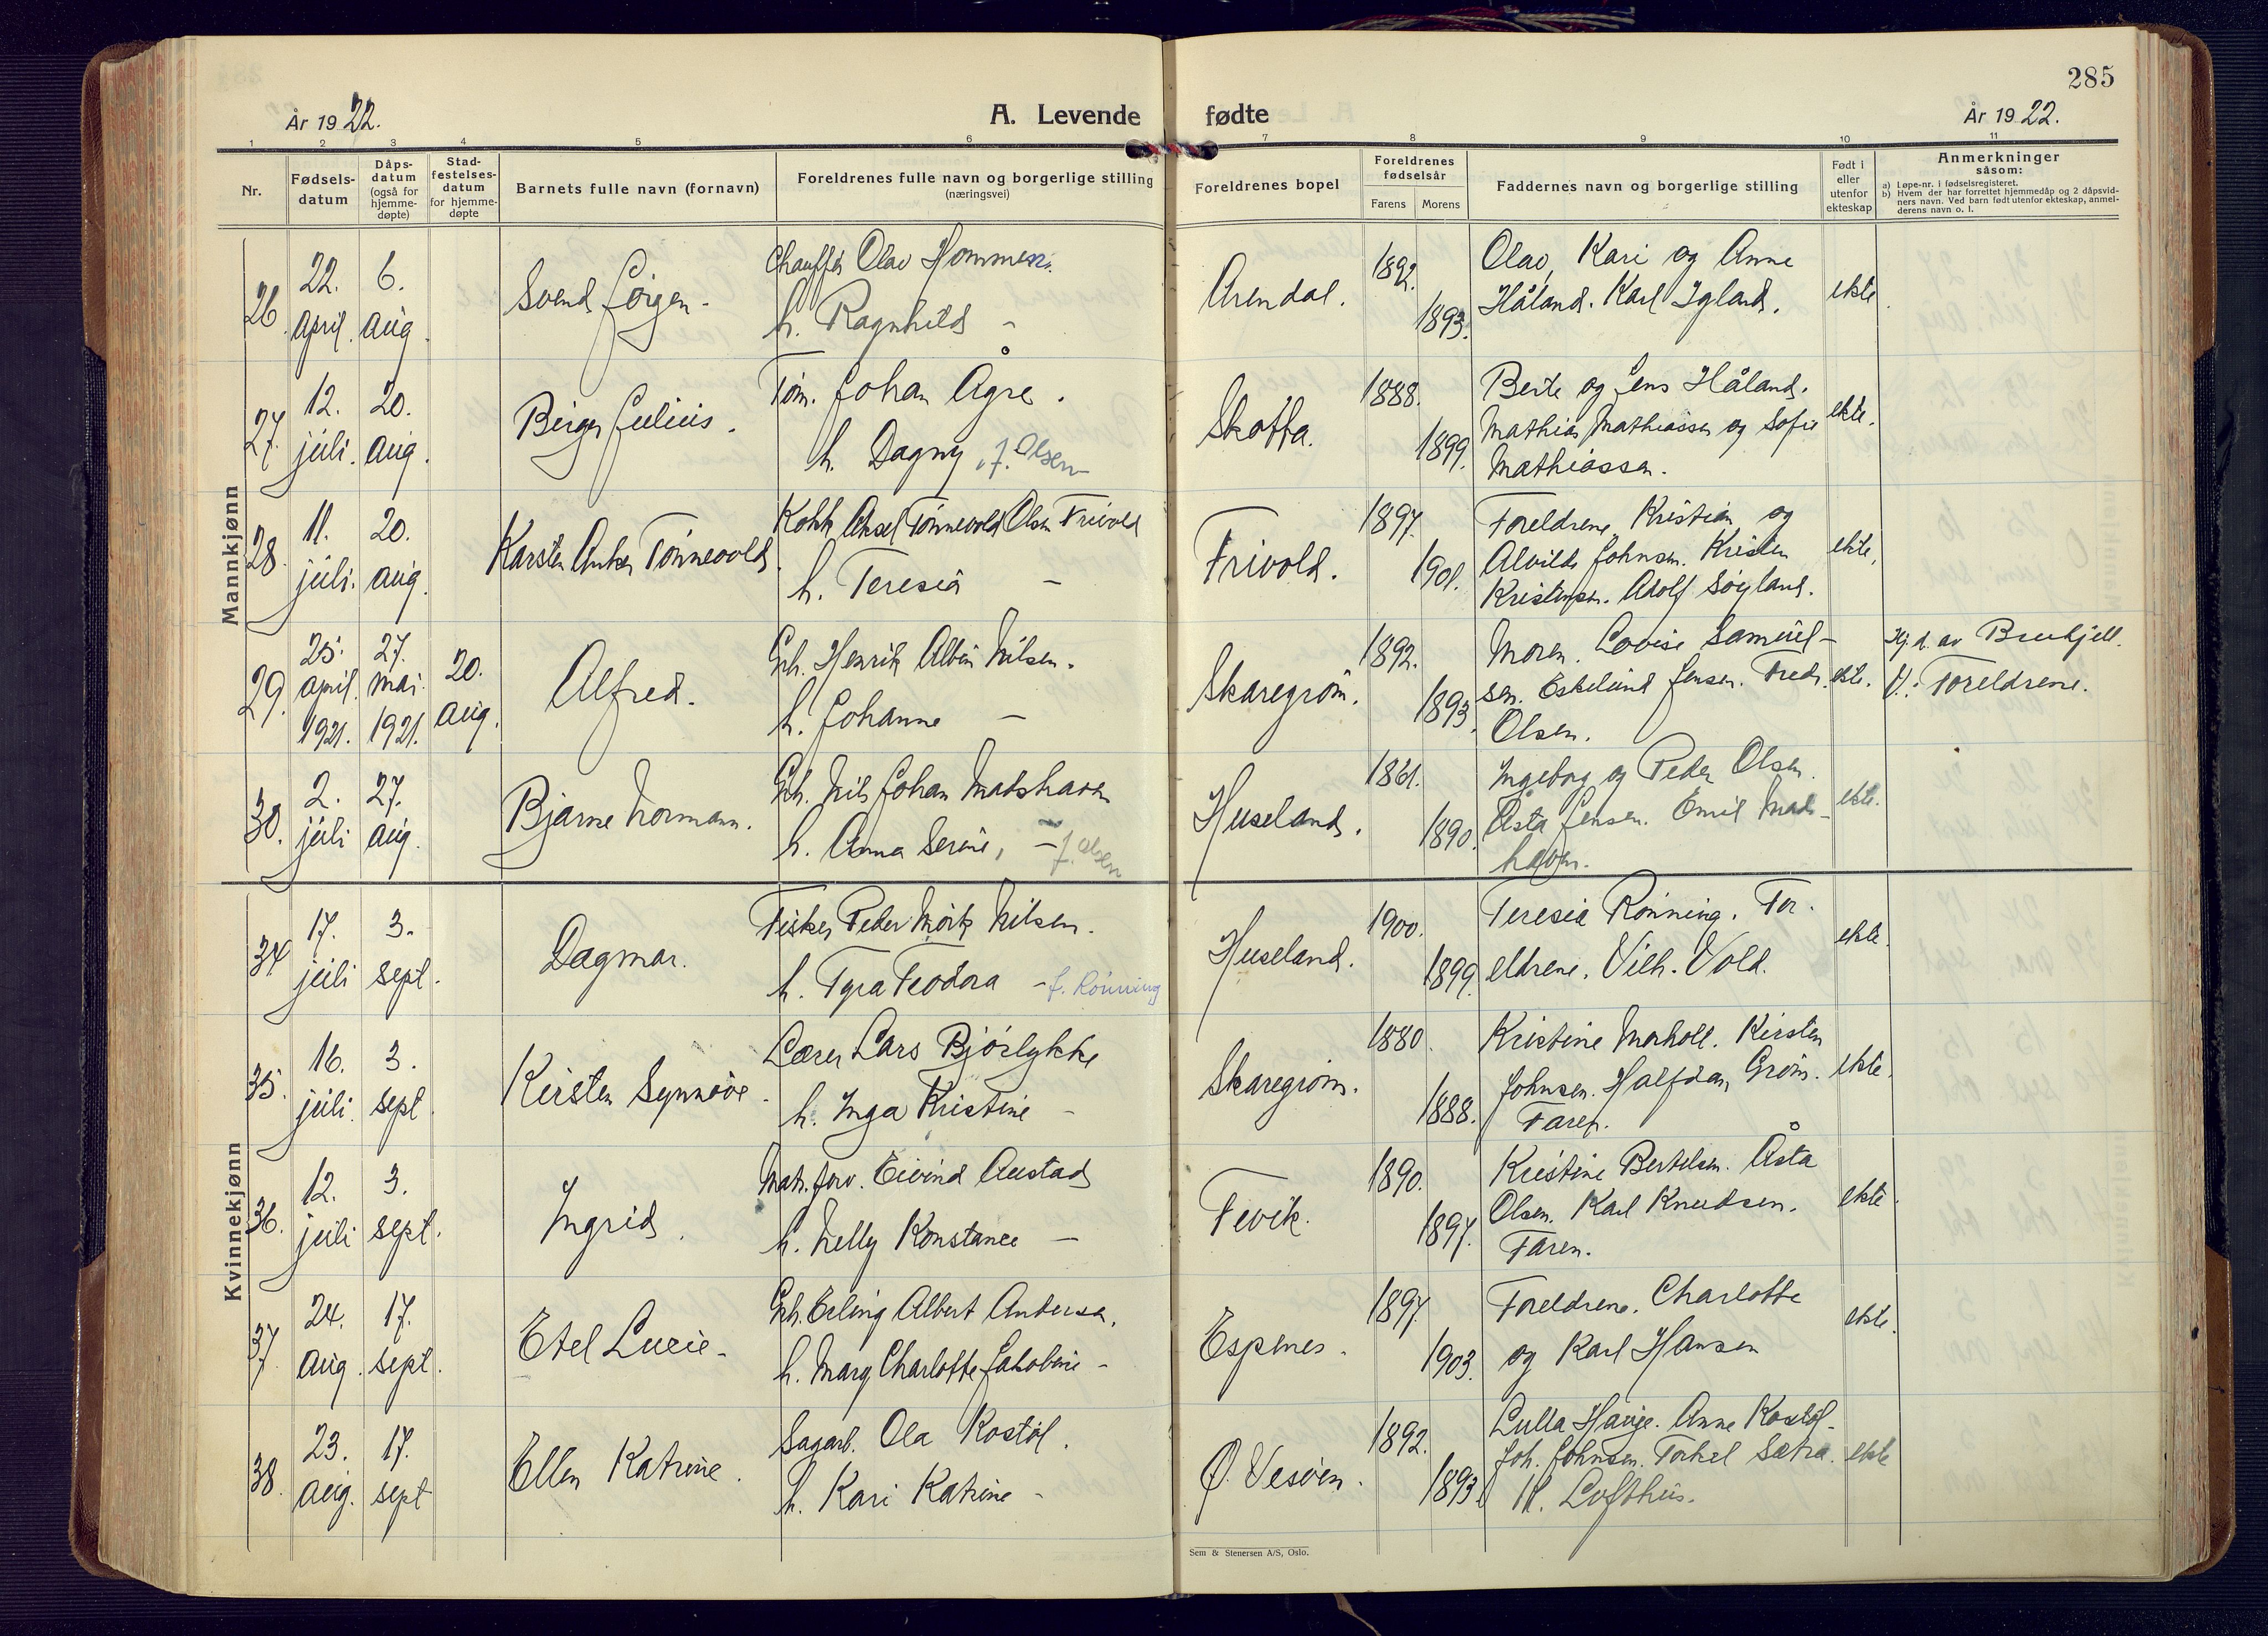 285
År 1922.
A. Levende fødte
År 1922.
1 2 3 4 5 6 7 8 9 10 11
Nr.
Fødsels-
datum
Dåps-
datum
(også for
hjemme-
døpte)
Stad-
festelses-
datum
for hjemme-
døpte
Barnets fulle navn (fornavn)
Foreldrenes fulle navn og borgerlige stilling
(næringsvei)
Foreldrenes bopel
Foreldrenes
fødselsår
Farens Morens
Faddernes navn og borgerlige stilling
Født i
eller
utenfor
ekteskap
Anmerkninger
såsom:
a) Løpe-nr. i fødselsregisteret.
b) Hvem der har forrettet hjemmedåp og 2 dåpsvid-
ners navn. Ved barn født utenfor ekteskap, anmel-
derens navn o. l.
Mannkjønn
26.
22.
april.
6.
aug.
Svend Jörgen.
Chaufför Olav Hommen.
h. Ragnhild -
Arendal.
1892.
1893.
Olav, Kari og Anne
Håland. Karl Igland.
ekte.
27.
12.
juli.
20.
aug.
Birger Julius.
Töm. Johan Ågre.
h. Dagny, f. Olsen
Skotta.
1888.
1899.
Berte og Jens Håland.
Mathias Mathiassen og Sofie
Mathiassen.
ekte.
28.
11.
juli.
20.
aug.
Karsten Anker Tönnevold.
Kokk Aksel Tönnevold Olsen Frivold
h. Teresia -
Frivold.
1897.
1901.
Foreldrene, Kristian og
Alvilde Johnsen. Kristen
Kristensen. Adolf Söyland.
ekte.
29.
25.
april.
1921.
27.
mai.
1921.
20.
aug.
Alfred.
Gbh. Henrik Albin Nilsen.
h. Johanne -
Skaregröm.
1892.
1893.
Moren. Lovise Samuel-
sen. Eskelund Jensen. Fredr.
Olsen.
ekte.
Hj. d. av Brekjell.
V.: Foreldrene.
30.
2.
juli
27.
aug.
Bjarne Normann.
Gbh. Nils Johan Madshaven
h. Anna Serine, - f. Olsen
Huseland.
1861.
1890.
Ingeborg og Peder Olsen.
Åsta Jensen. Emil Mads-
haven.
ekte.
Kvinnekjønn
34
17.
juli
3.
sept.
Dagmar.
Fisker Peder Mörk Nilsen.
h. Tyra Teodora - f. Rönning
Huseland.
1900.
1899.
Teresia Rönning. For-
eldrene. Vilh. Vold.
ekte.
35.
16.
juli.
3.
sept.
Kirsten Synnöve.
Lærer Lars Bjórlykke
h. Inga Kristine -
Skaregröm.
1880.
1888.
Kristine Morholt. Kirsten
Johnsen. Halfdan Gröm.
Faren.
ekte.
36.
12.
juli
3.
sept.
Ingrid.
Mat. forv. Eivind Austad
h. Nelly Konstance -
Fevik.
1890.
1897.
Kristine Bertelsen. Åsta
Olsen. Karl Knudsen.
Faren.
ekte.
37
24.
aug.
17.
sept.
Etel Lucie.
Gbh. Erling Albert Andersen.
h. Marg Charlotte Jakobine -
Espenes.
1897.
1903.
Foreldrene. Charlotte
og Karl Hansen
ekte.
38.
23.
aug.
17.
sept
Ellen Katrine.
Sagarb. Ola Kostöl.
h. Kari Katrine -
Ö. Vesöen.
1892.
1893
Lulla Hauge. Anne Kostöl.
Joh. Johnsen. Torkel Sætra.
K. Lofthus.
ekte
Sem & Stenersen A/S, Oslo.